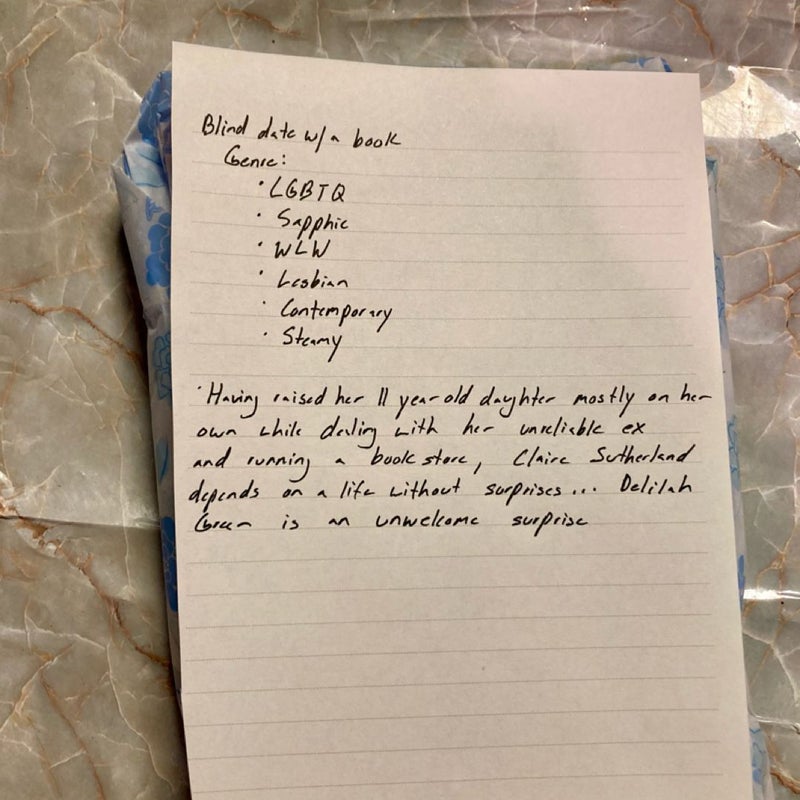 Blind date w/a book
Genre:
• LGBTQ
• Sapphic
• WLW
• Lesbian
• Contemporary
• Steamy
• Having raised her 11 year old daughter mostly on her
own while dealing with her unreliable ex
and running a book store, Claire Sutherland
depends on a life without surprises... Delilah
Green is an unwelcome surprise